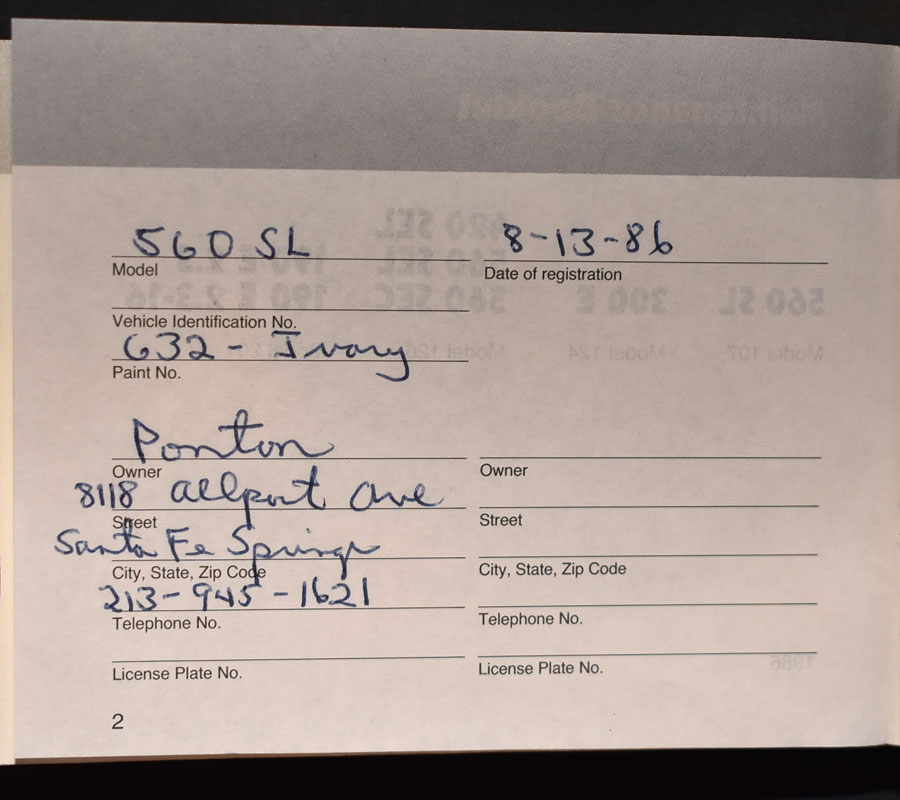 560 SL 8-13-86
Model Date of registration
Vehicle Identification No.
632 - Ivory
Paint No.
Ponton
Owner Owner
8118 Allport Ave
Street Street
Santa Fe Springs
City, State, Zip Code City, State, Zip Code
213-945-1621
Telephone No. Telephone No.
License Plate No. License Plate No.
2